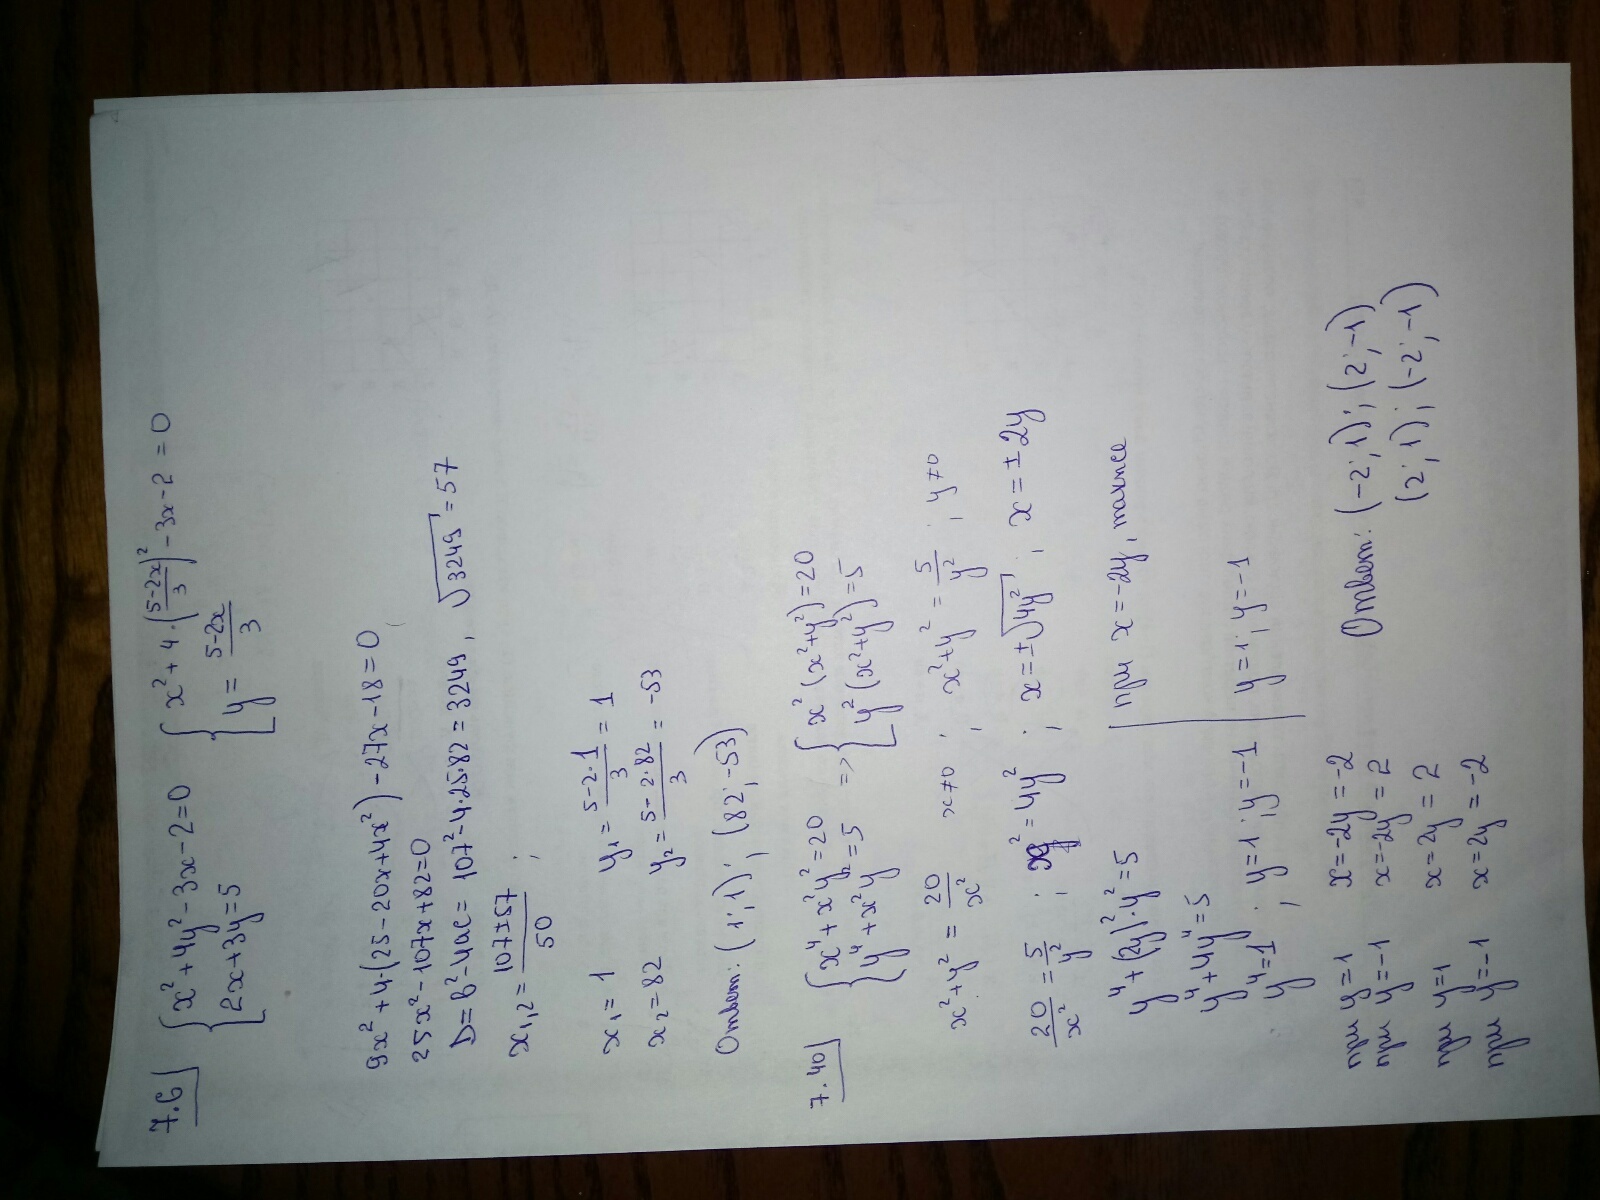 7.6 { x² + 4y² - 3x - 2 = 0 { x² + 4 · ((5-2x)/3)² - 3x - 2 = 0
2x + 3y = 5 y = (5-2x)/3
9x² + 4·(25 - 20x + 4x²) - 27x - 18 = 0
25x² - 107x + 82 = 0
D = b² - 4ac = 107² - 4·25·82 = 3249, √3249 = 57
x₁,₂ = (107±57)/50 ;
x₁ = 1 y₁ = (5-2·1)/3 = 1
x₂ = 82 y₂ = (5-2·82)/3 = -53
Ответ: (1; 1); (82; -53)
7.40 { x⁴ + x²y² = 20 => { x² (x²+y²) = 20
y⁴ + x²y² = 5 y² (x²+y²) = 5
x² + y² = 20/x² x≠0 ; x² + y² = 5/y² ; y≠0
20/x² = 5/y² ; x² = 4y² ; x = ±√4y² ; x = ±2y
y⁴ + (2y)²·y² = 5 при x = -2y, также
y⁴ + 4y⁴ = 5
y⁴ = 1 ; y = 1 ; y = -1 y = 1 ; y = -1
при y = 1 x = -2y = -2
при y = -1 x = -2y = 2
при y = 1 x = 2y = 2
при y = -1 x = 2y = -2
Ответ: (-2; 1); (2; -1)
(2; 1); (-2; -1)